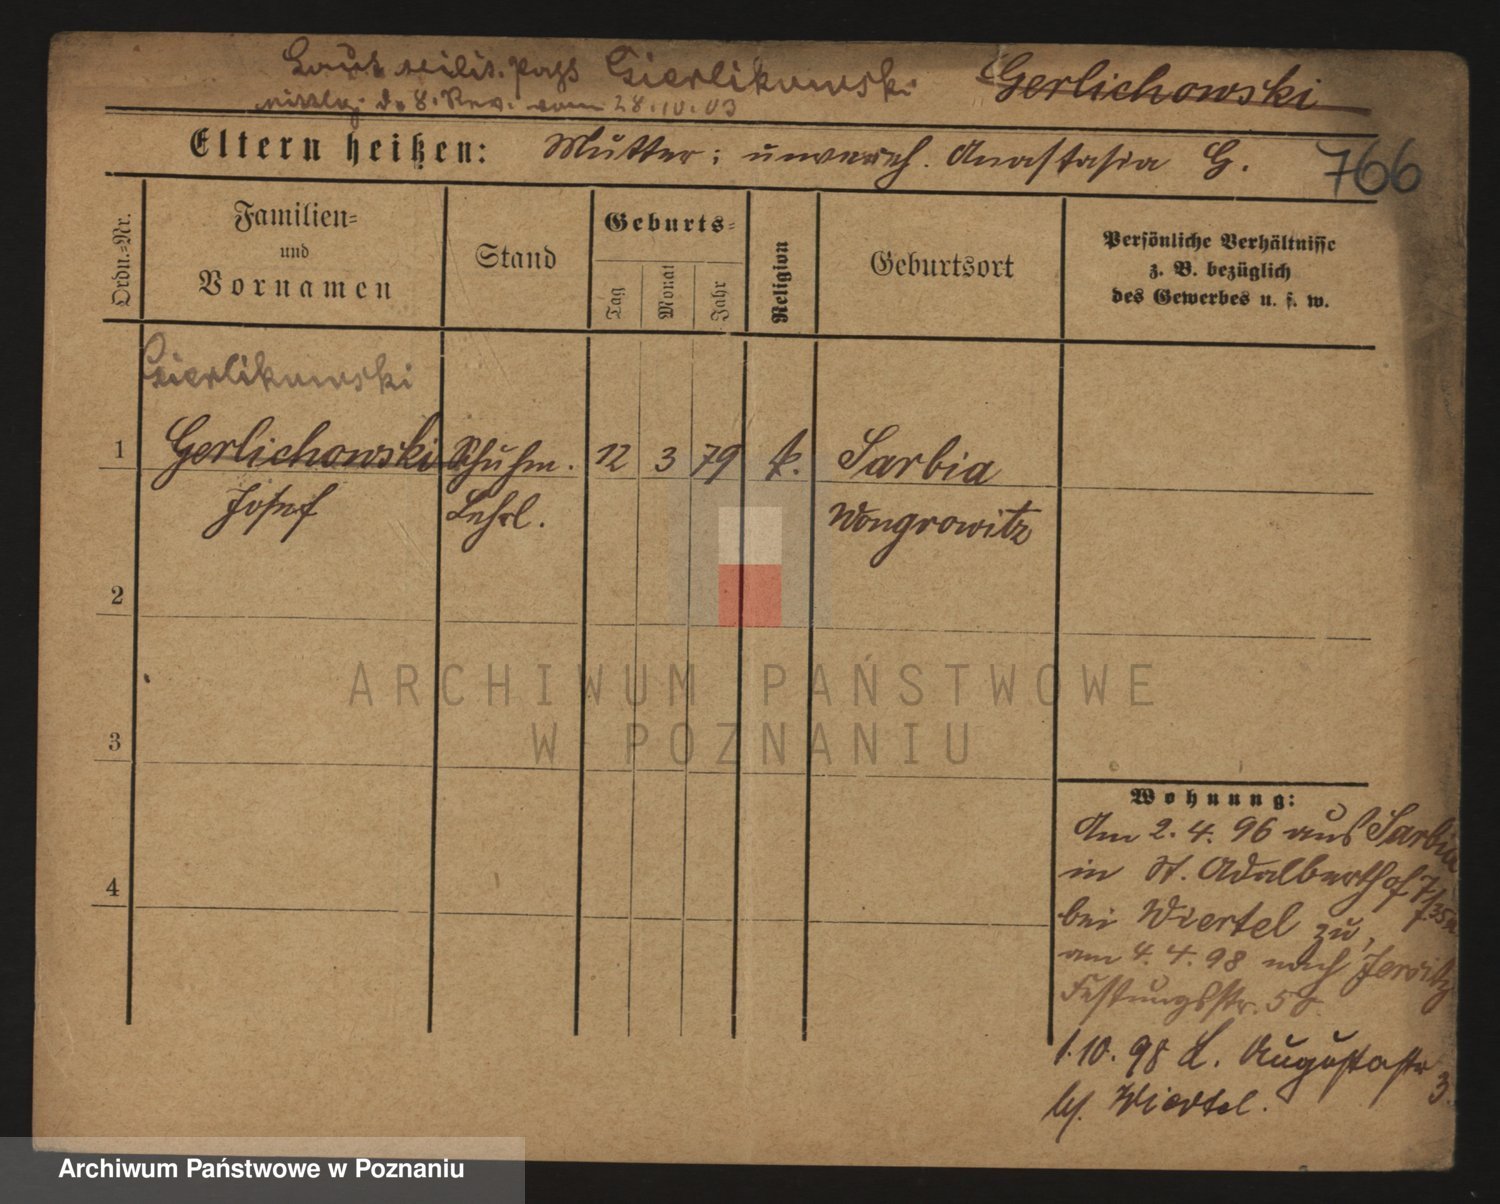 Laut milit. Pass Gierlikowski Gerlichowski
vom 28.10.03
Eltern heißen: Mutter: unvereh. Anastasia G. 766
Ordn.=Nr.
Familien=
und
Vornamen
Stand
Geburts=
Tag
Monat
Jahr
Religion
Geburtsort
Persönliche Verhältnisse
z. B. bezüglich
des Gewerbes u. s. w.
Gierlikowski
1 Gerlichowski Schuhm. 12 3 79 k. Sarbia
Josef Lehrl. Wongrowitz
2
3
4
ARCHIWUM PAŃSTWOWE
W POZNANIU
Wohnung:
Am 2. 4. 96 aus Sarbia
in St. Adalberthof 7/
bei Wiertel zu,
am 4. 4. 98 nach Jersitz
Festungsstr. 5
1.10.98 L. Augustastr 3.
bei Wiertel.
Archiwum Państwowe w Poznaniu